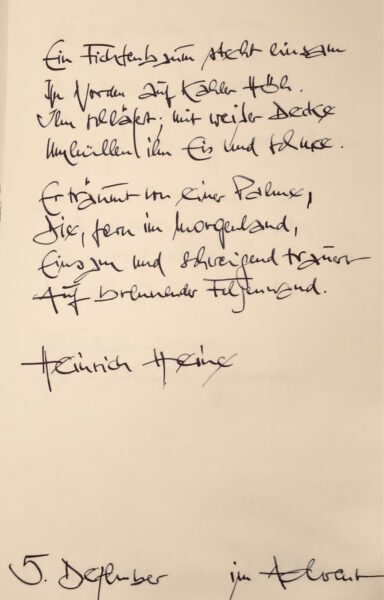 Ein Fichtenbaum steht einsam
Im Norden auf kahler Höh.
Ihn schläfert; mit weißer Decke
Umhüllen ihn Eis und Schnee.
Er träumt von einer Palme,
Die, fern im Morgenland,
Einsam und schweigend trauert
Auf brennender Felsenwand.
Heinrich Heine
5. Dezember im Advent